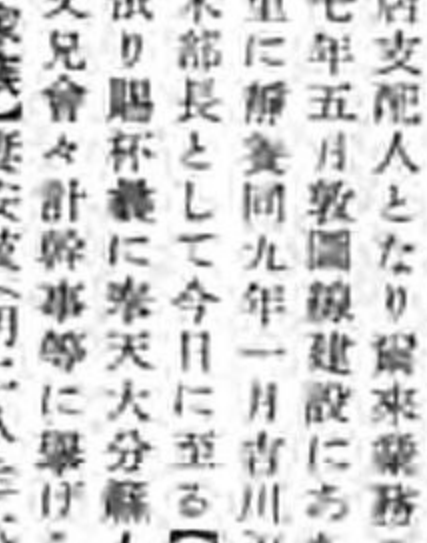 店支配人となり爾來業務
七年五月敦圖線建設にあ
に靜養同九年一月吉川
部長として今日に至る【
り賜杯曩に奉天大分縣人
父兄會々計幹事等に舉げ
家族】妻